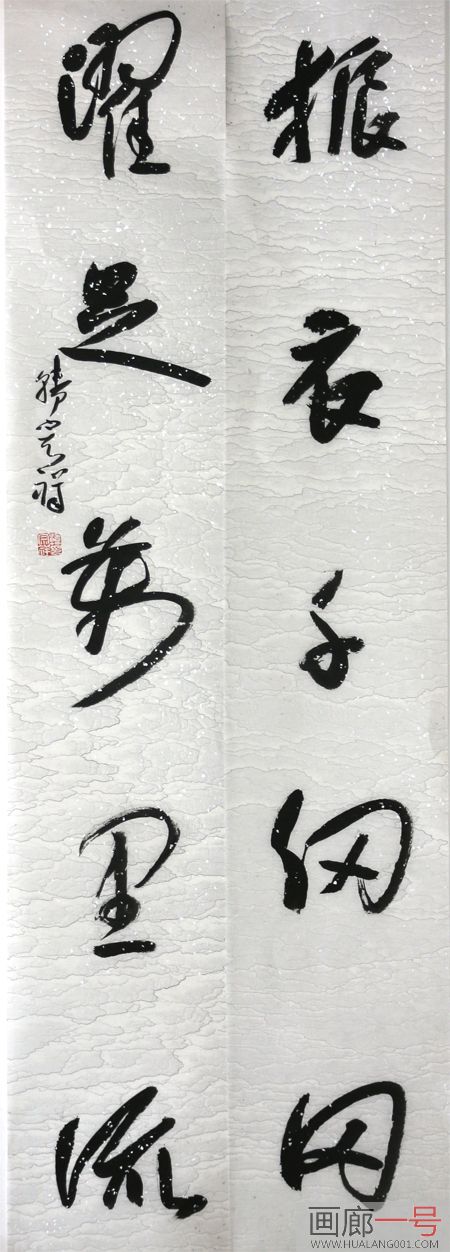 振衣千仞冈
濯足万里流
画廊一号
WWW.HUALANG001.COM